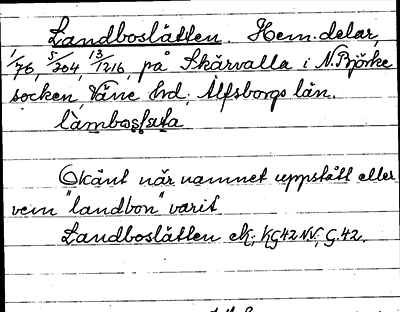 Landboslätten. Hem.delar,
1/76, 5/304, 13/1216, på Skärvalla i N. Björke
socken, Väne hd, Älfsborgs län.
làmbosʃǝta
Okänt när namnet uppstått eller
vem "landbon" varit.
Landboslätten ek; KG42NV; G.42.